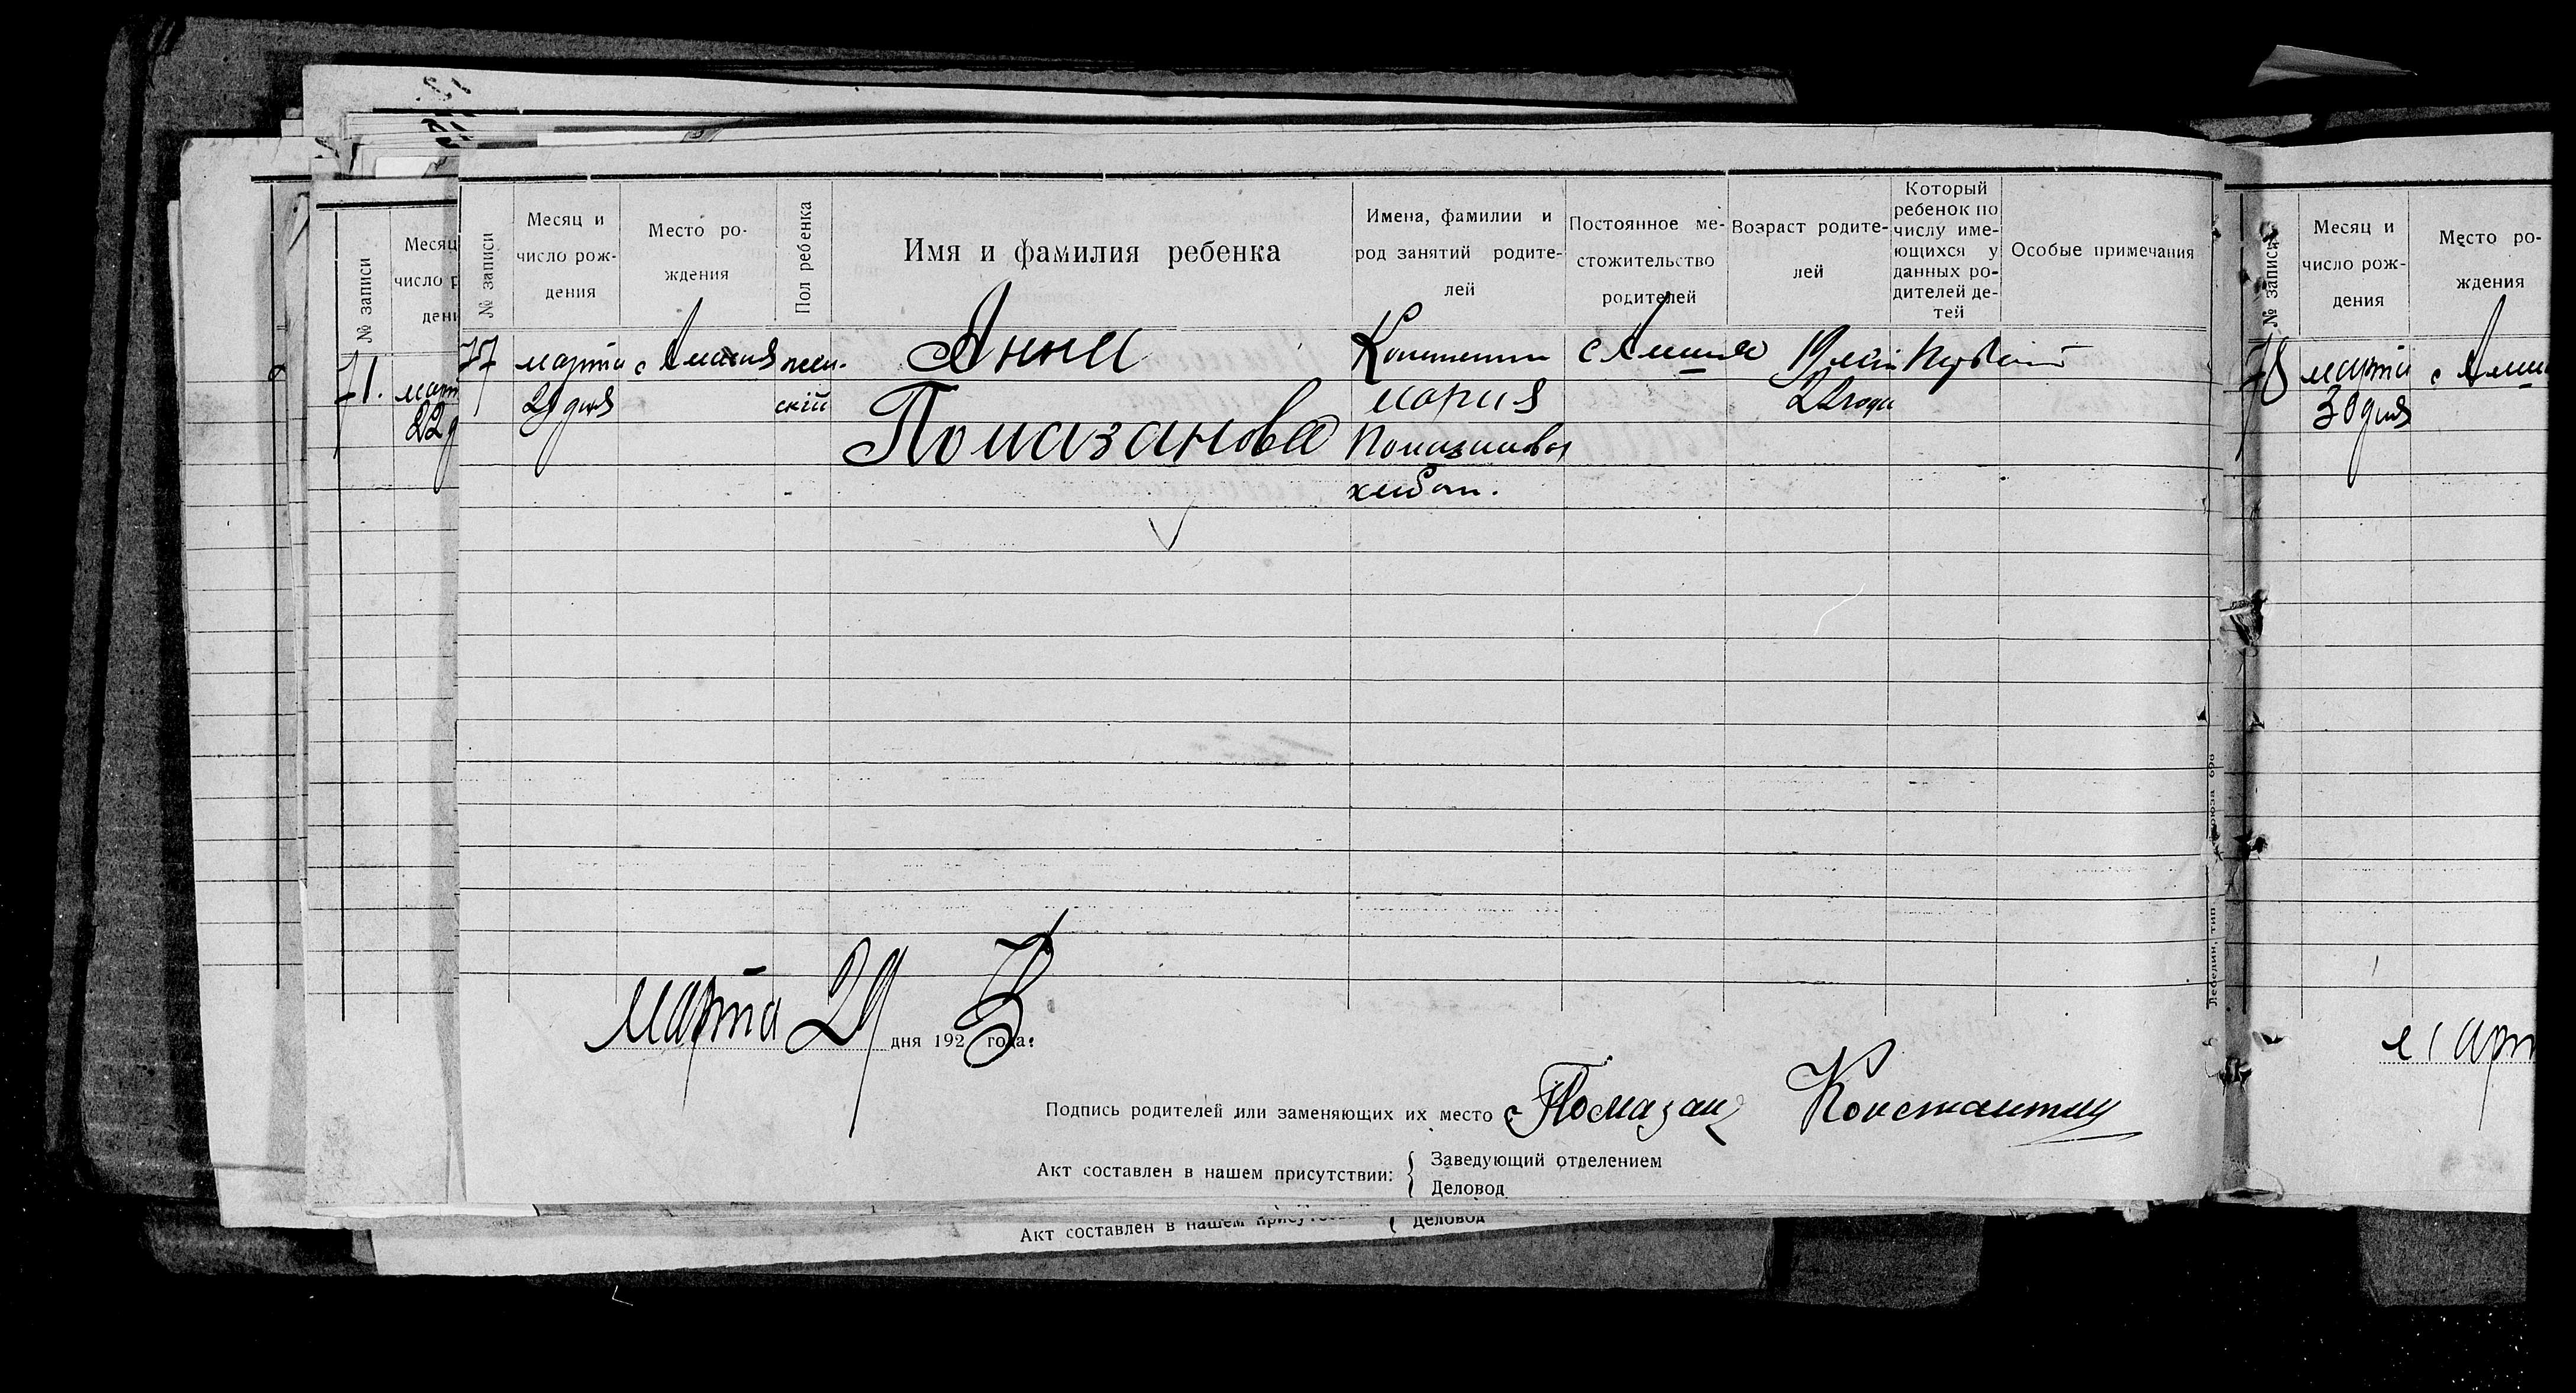 № записи
Месяц и число рож- дения
Место ро- ждения
Пол ребенка
Имя и фамилия ребенка
Имена, фамилии и род занятий родите- лей
Постоянное ме- стожительство родителей
Возраст родите- лей
Который ребенок по числу име- ющихся у данных ро- дителей де- тей
Особые примечания
77
марта
29 дня
жен-
ский
Анна
Помазанова
Константин
Мария
Помазановы
хлебоп.
19 лет
22 года
Первый
марта 29 дня 1923 года.
Подпись родителей или заменяющих их место Помазан Константин
Акт составлен в нашем присутствии:
Заведующий отделением
Деловод
Акт составлен в нашем
Деловод
№ записи
71.
22
№ записи
Месяц и число рож- дения
Место ро- ждения
78
марта
30 дня
Лебедин, тип